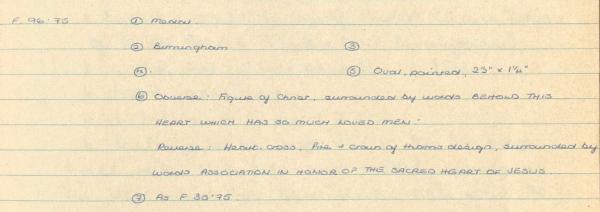 F. 96'75 ① Medal.
② Birmingham ③
④. ⑤ Oval, pointed, 23" x 1¼"
⑥ Obverse: Figure of Christ, surrounded by words BEHOLD THIS
HEART WHICH HAS SO MUCH LOVED MEN.'
Reverse: Heart, cross, fire & crown of thorns design, surrounded by
WORDS ASSOCIATION IN HONOR OF THE SACRED HEART OF JESUS.
⑦ As F 30'75